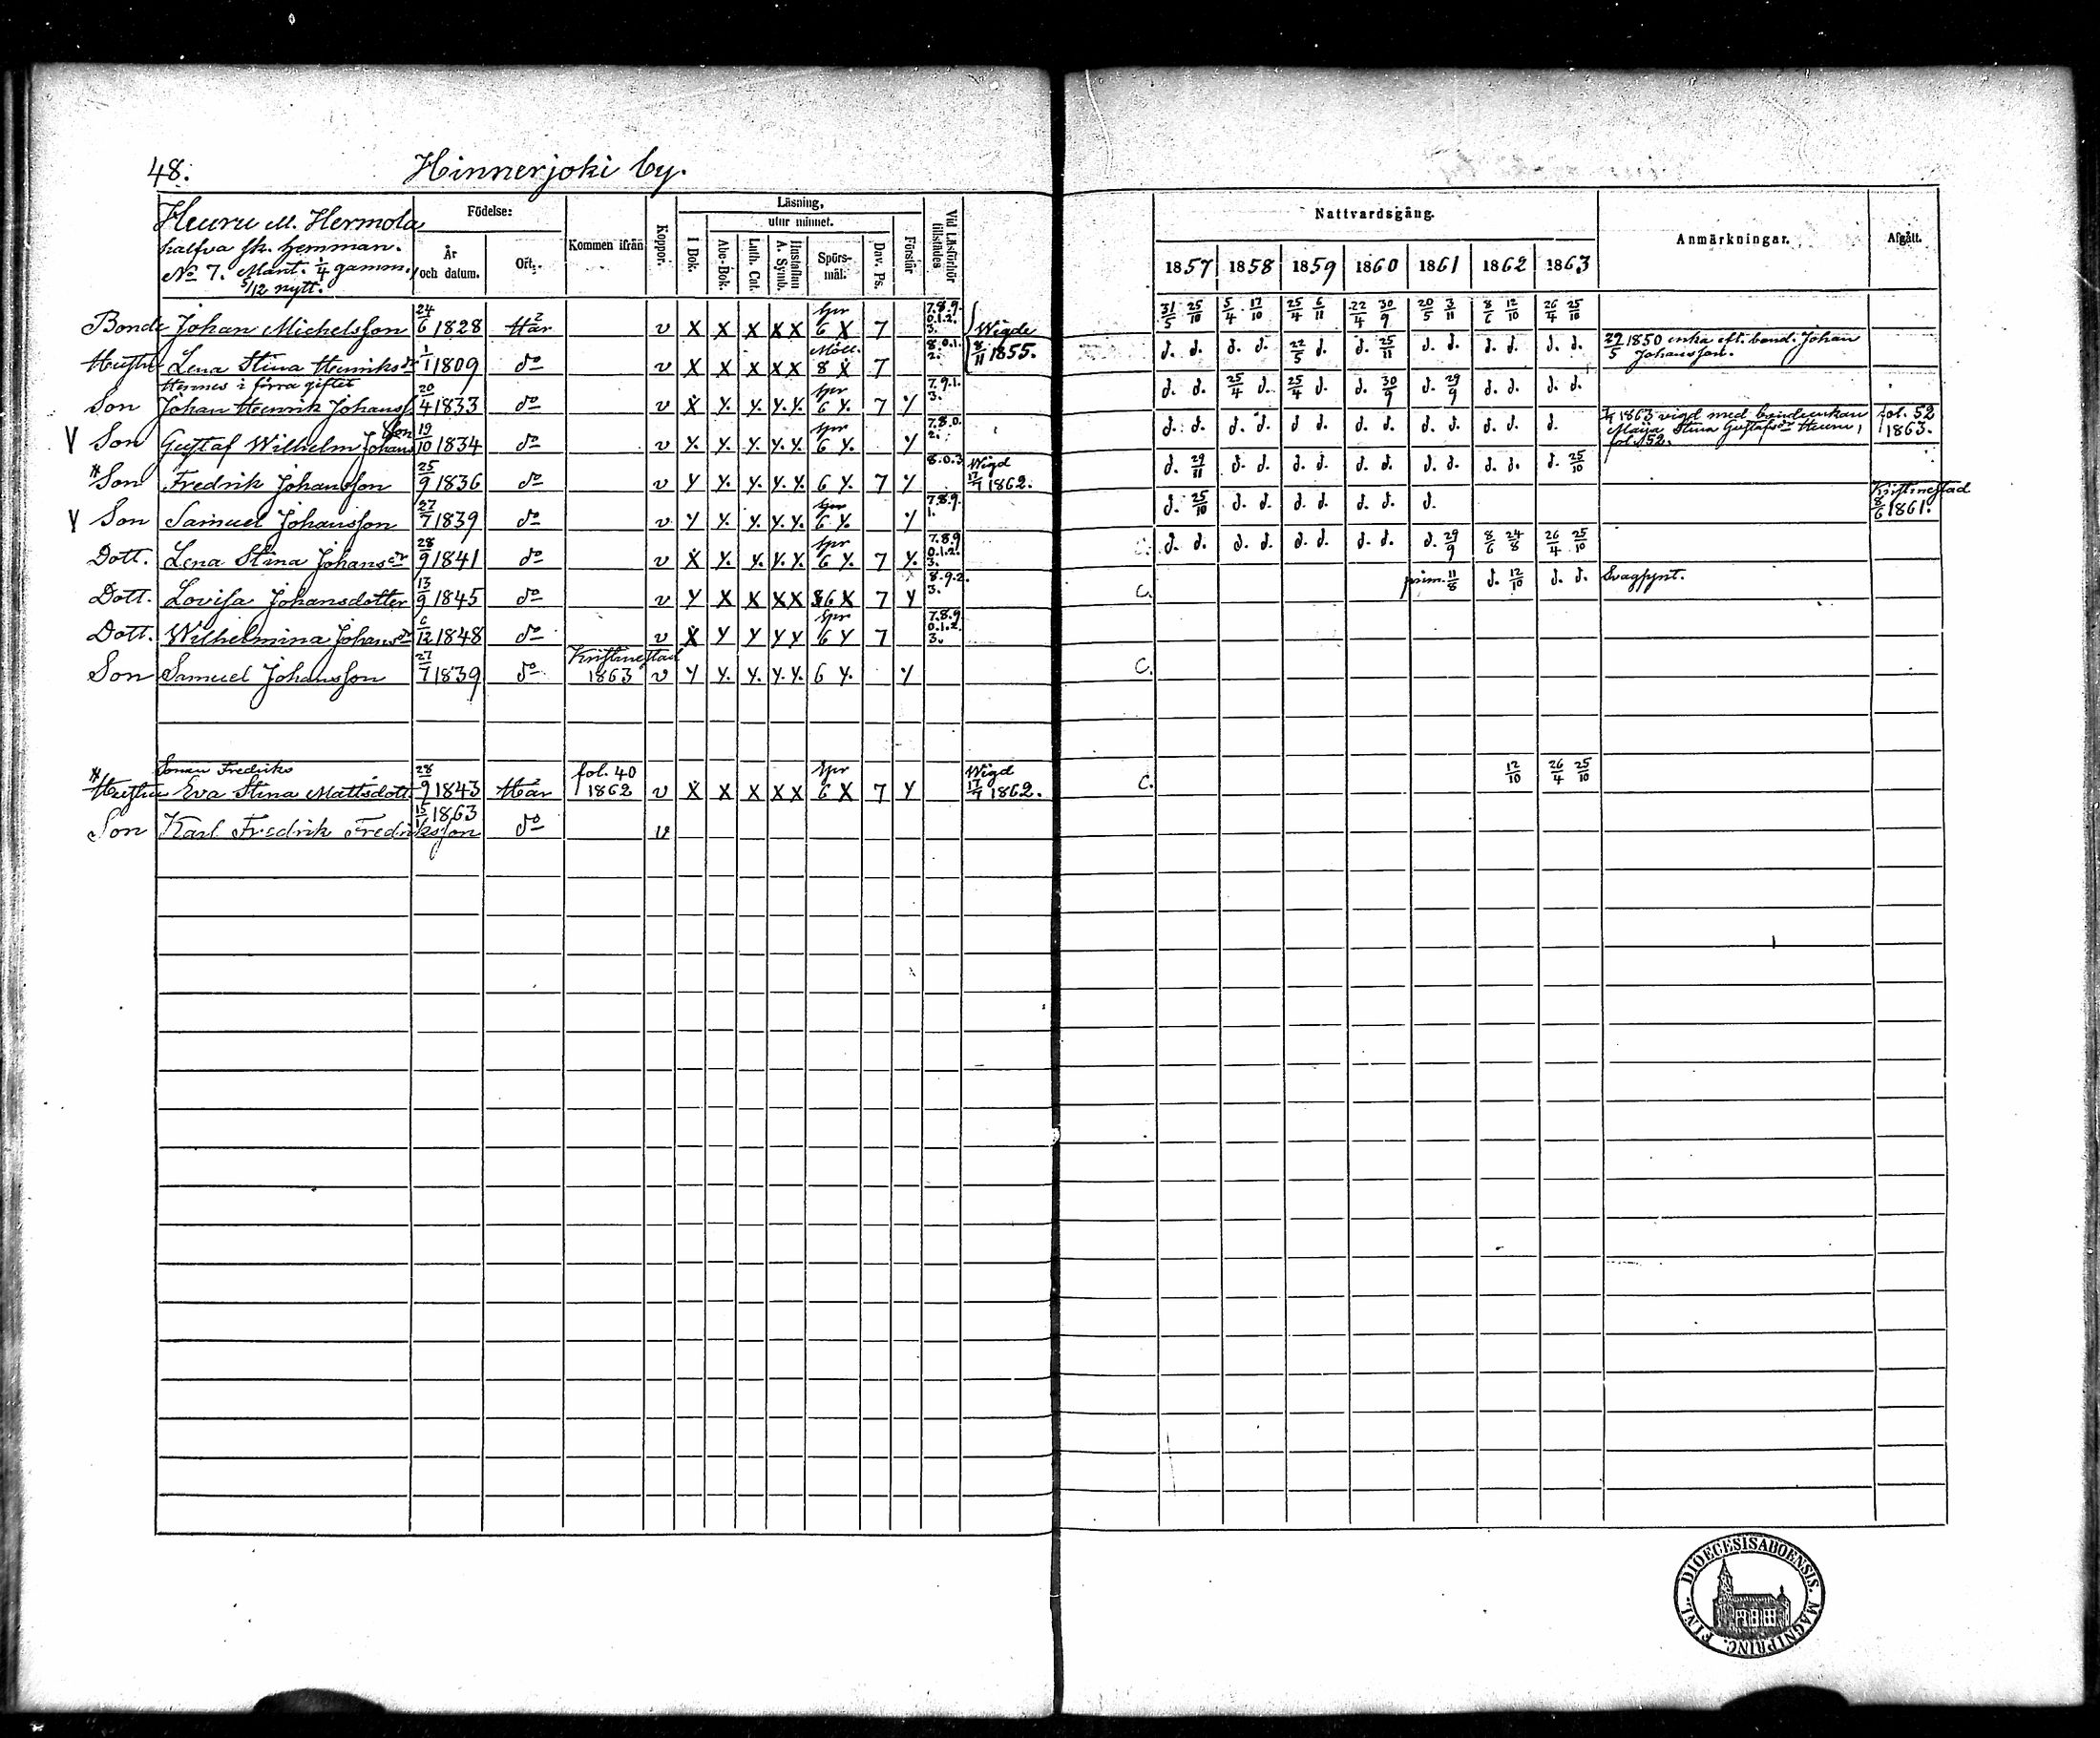 48. Hinnerjoki by.
Heuru M. Hermola
halfva sk. hemman.
No 7. Mant. 1/4 gamm.
5/12 nytt.
Födelse:
År och datum.
Ort.
Kommen ifrån
Koppor.
Läsning,
utur minnet.
I Bok.
Abc-Bok.
Luth. Cat.
Hustaflan A. Symb.
Spörsmål.
Dav. Ps.
Förstår
Vid Läsförhör tillstädes
Nattvardsgång.
1857 1858 1859 1860 1861 1862 1863
Anmärkningar.
Afgått.
Bonde Johan Michelsson 24/6 1828 Här v X X X X X Spr 6 X 7 7.8.9. 0.1.2. 3. Wigde 31/5 25/10 5/4 17/10 25/4 6/11 22/4 30/9 20/5 3/11 8/6 12/10 26/4 25/10
Hustru Lena Stina Henriksdr 1/1 1809 do v X X X X X Möll. 8 X 7 8.0.1. 2. 8/11 1855. d. d. d. d. 22/5 d. d. 25/11 d. d. d. d. d. d. 29/5 1850 enka eft. bond. Johan Johansson.
Hennes i förra giftet
Son Johan Henrik Johanss. 20/4 1833 do v X Y. Y. Y. Y. Spr 6 Y. 7 Y 7.9.1. 3. d. d. 25/4 d. 25/4 d. d. 30/9 d. 29/9 d. d. d. d.
V Son Gustaf Wilhelm Johansson 19/10 1834 do v Y. Y. Y. Y. Y. Spr 6 Y. Y 7.8.0. 2. d. d. d. d. d. d. d. d. d. d. d. d. d. 1863 vigd med bondeenkan Maija Stina Gustafsdr Heuru, fol. 52. fol. 52 1863.
# Son Fredrik Johansson 25/9 1836 do v Y Y. Y. Y. Y. 6 Y. 7 Y 8.0.3 Wigd 17/7 1862. d. 29/11 d. d. d. d. d. d. d. d. d. d. d. 25/10
V Son Samuel Johansson 27/7 1839 do v Y Y. Y. Y. Y. Spr 6 Y. Y 7.8.9. 1. d. 25/10 d. d. d. d. d. d. d. Kristinestad 8/6 1861.
Dott. Lena Stina Johansdr 28/9 1841 do v X Y. Y. Y. Y. Spr 6 Y. 7 Y. 7.8.9 0.1.2. 3. d. d. d. d. d. d. d. d. d. 29/9 8/6 24/8 26/4 25/10
Dott. Lovisa Johansdotter 13/9 1845 do v Y X X X X 6 X 7 Y 8.9.2. 3. C. prim. 11/8 d. 12/10 d. d. Svagsynt.
Dott. Wilhelmina Johansdr 6/12 1848 do v X Y Y Y Y Spr 6 Y 7 7.8.9 0.1.2. 3.
Son Samuel Johansson 27/7 1839 do Kristinestad 1863 v Y Y. Y. Y. Y. 6 Y. Y C.
Sonen Fredriks
# Hustru Eva Stina Mattsdott. 28/9 1843 Här fol. 40 1862 v X X X X X Spr 6 X 7 Y Wigd 17/7 1862. C. 12/10 26/4 25/10
Son Karl Fredrik Fredriksson 15/1 1863 do v
DIOECESIS ABOENSIS. MAGNI PRINC. FINL.